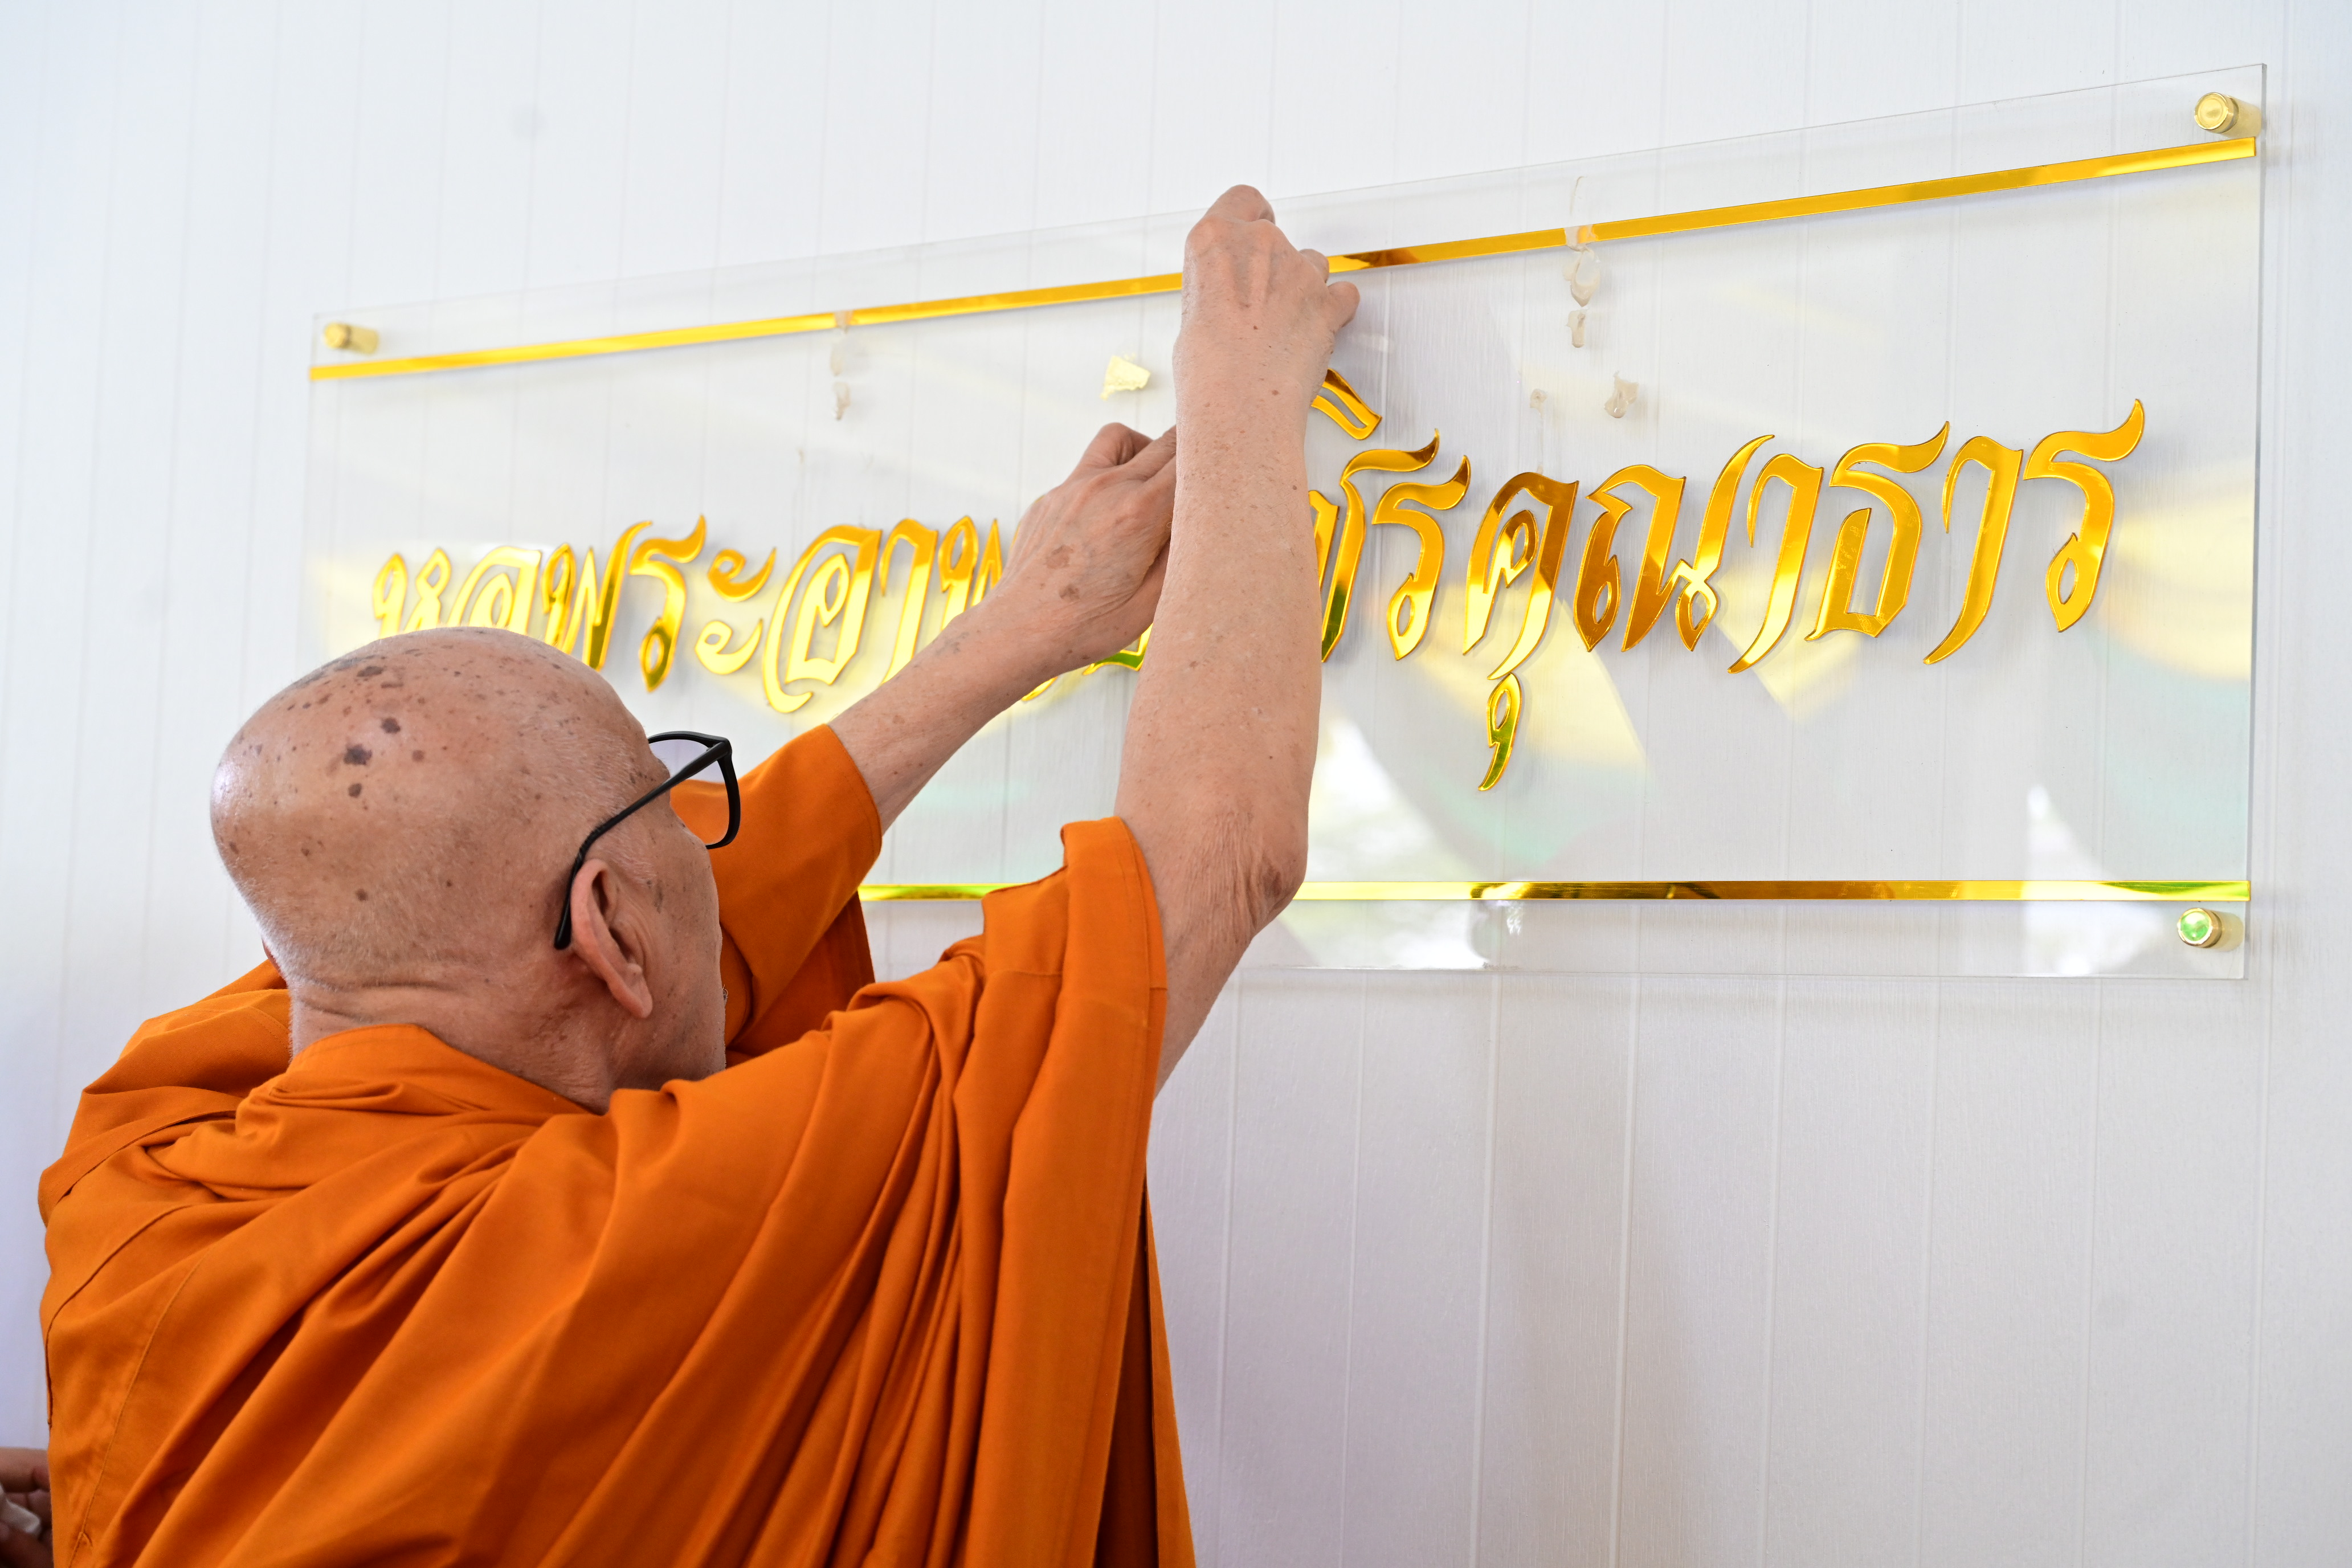 หอพระอาพ ชิรคุณาธาร